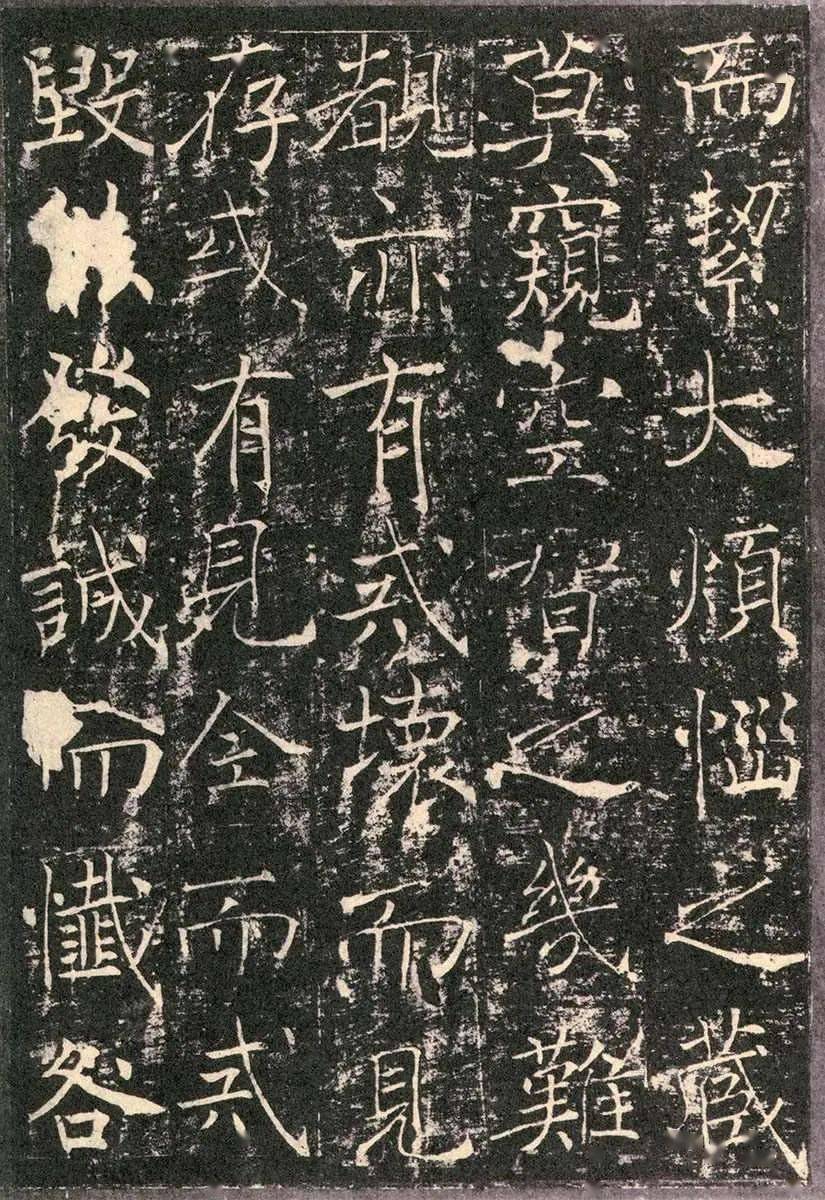 而絜大煩惱之藏
莫窺空之幾難
覩亦有忒壞而見
存或有見全而忒
毀發誠而懺咎